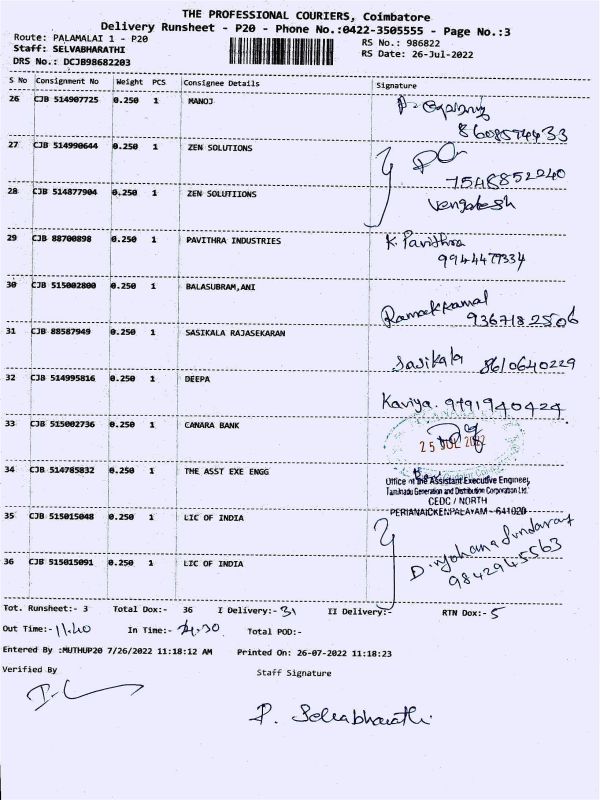 THE PROFESSIONAL COURIERS, Coimbatore
Delivery Runsheet - P20 - Phone No.:0422-3505555 - Page No.:3
Route: PALAMALAI 1 - P20 RS No.: 986822
Staff: SELVABHARATHI RS Date: 26-Jul-2022
DRS No.: DCJB98682203
S No Consignment No Weight PCS Consignee Details Signature
26 CJB 514907725 0.250 1 MANOJ
8608594433
27 CJB 514990644 0.250 1 ZEN SOLUTIONS
7548852040
28 CJB 514877904 0.250 1 ZEN SOLUTIIONS Vengatesh
29 CJB 88700898 0.250 1 PAVITHRA INDUSTRIES K. Pavithra
9944479334
30 CJB 515002800 0.250 1 BALASUBRAM,ANI
9367182506
31 CJB 88587949 0.250 1 SASIKALA RAJASEKARAN
Sasikala 8610640229
32 CJB 514995816 0.250 1 DEEPA
Kaviya. 9791940424
33 CJB 515002736 0.250 1 CANARA BANK
25 JUL 2022
34 CJB 514785832 0.250 1 THE ASST EXE ENGG
Office of the Assistant Executive Engineer,
Tamilnadu Generation and Distribution Corporation Ltd.
CEDC / NORTH
PERIANAICKENPALAYAM - 641020
35 CJB 515015048 0.250 1 LIC OF INDIA
36 CJB 515015091 0.250 1 LIC OF INDIA
9842945563
Tot. Runsheet:- 3 Total Dox:- 36 I Delivery:- 31 II Delivery:- RTN Dox:- 5
Out Time:- 11.40 In Time:- Total POD:-
Entered By :MUTHUP20 7/26/2022 11:18:12 AM Printed On: 26-07-2022 11:18:23
Verified By Staff Signature
P. Selvabharathi